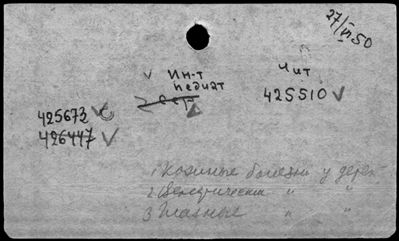 27/VI 50
Ин-т
педиат
Чит
425510
425673
426447
1 Кожные болезни у детей
2 Венерические " "
3 Глазные " "